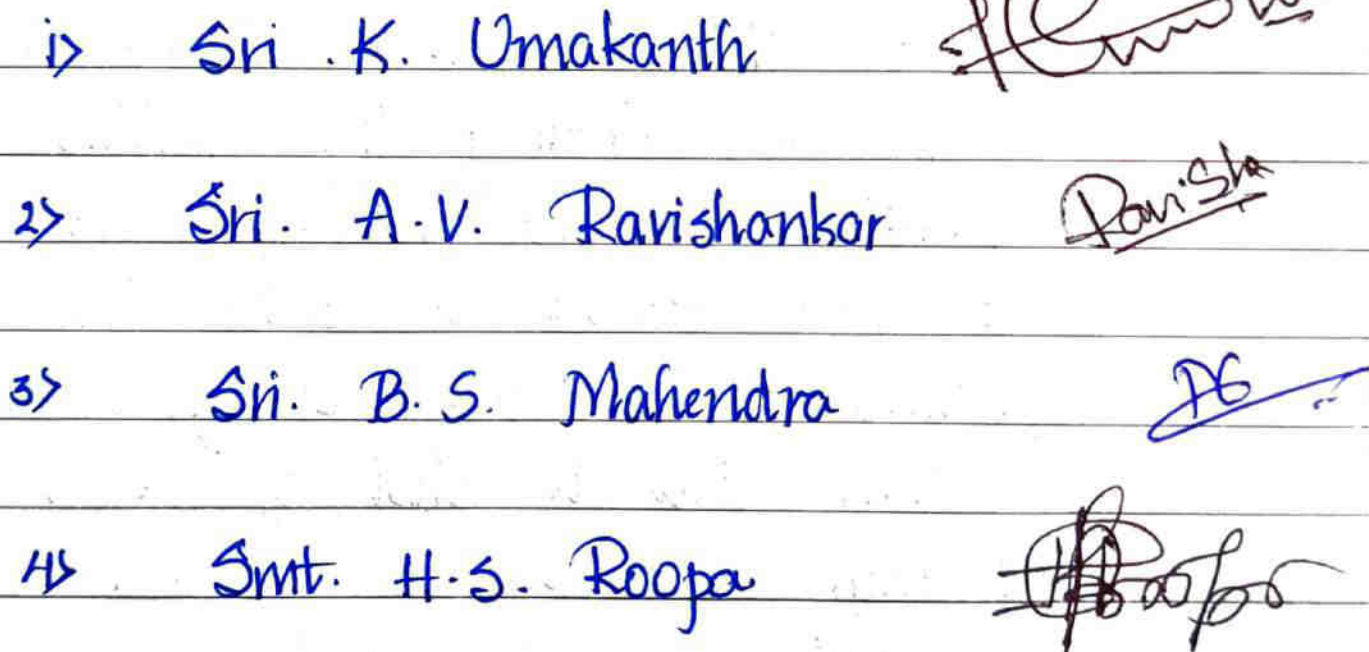 1) Sri . K. Umakanth
2) Sri. A.V. Ravishankar Ravish
3) Sri. B.S. Mahendra
4) Smt. H.S. Roopa